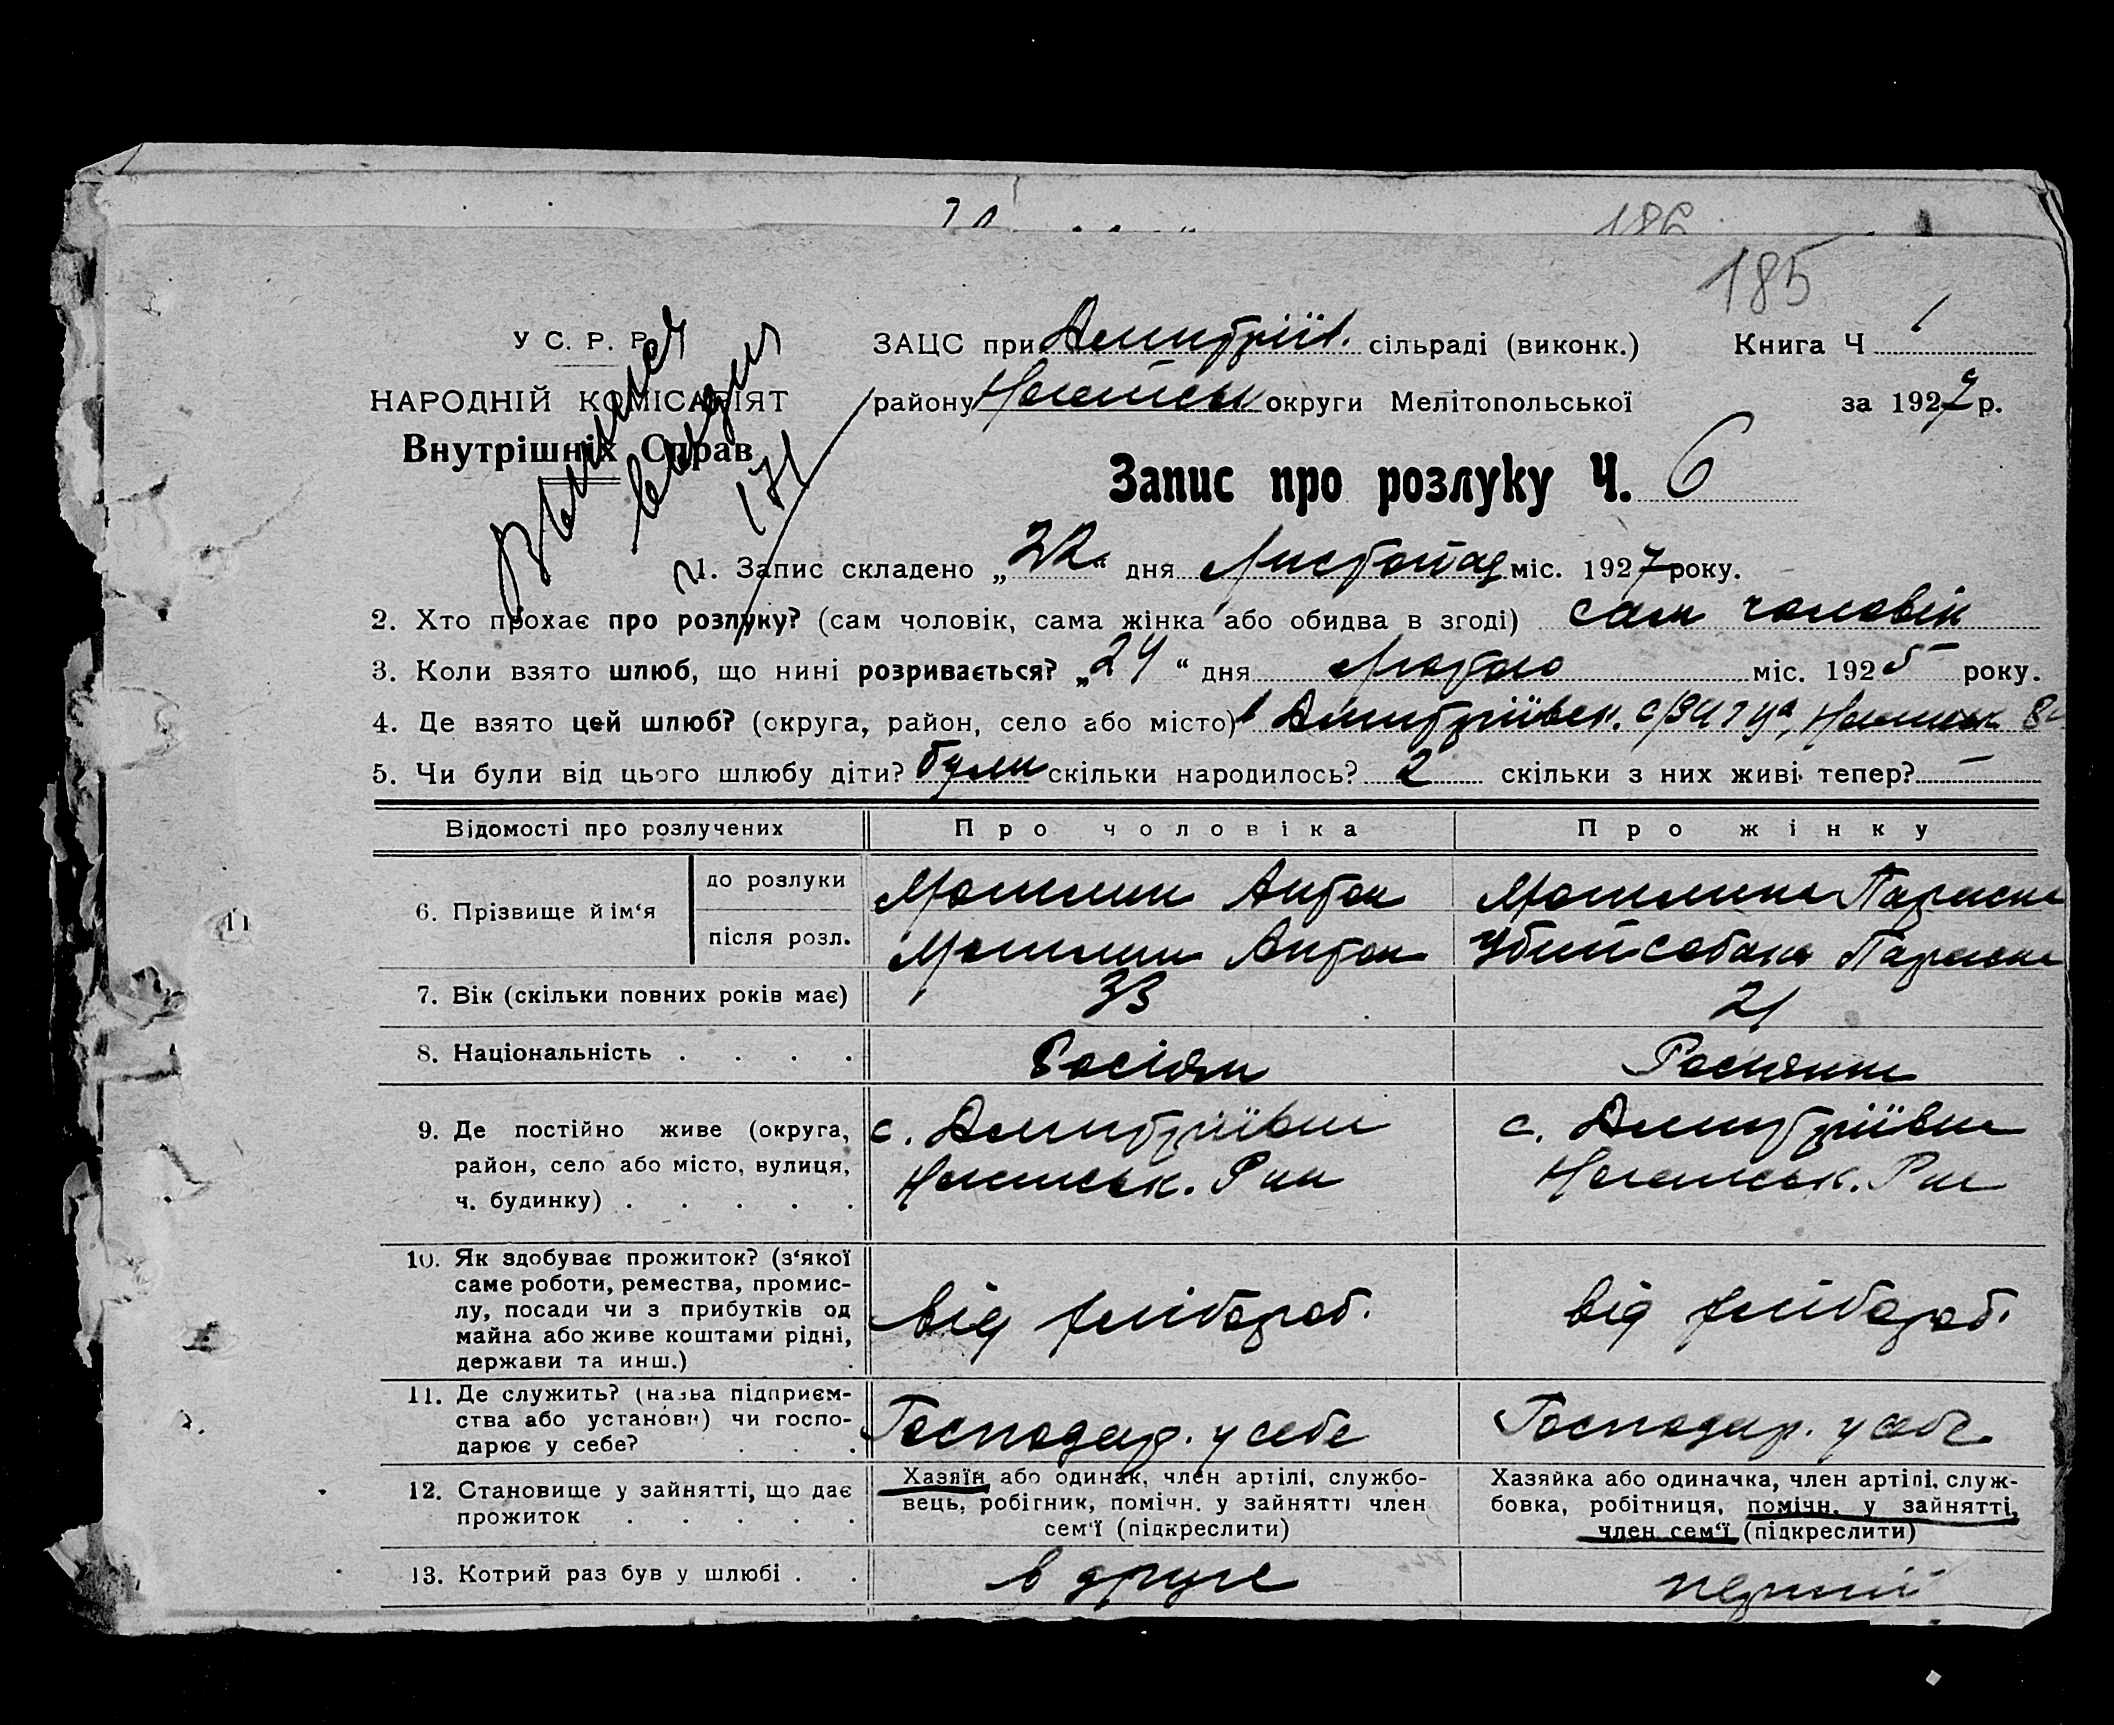 186
185
У С. Р. Р.
ЗАЦС при Дмитріїв. сільраді (виконк.) Книга Ч 1
НАРОДНІЙ КОМІСАРІЯТ
району округи Мелітопольської за 1927 р.
Внутрішніх Справ
171
Запис про розлуку Ч. 6
1. Запис складено „22“ дня Листопад міс. 1927 року.
2. Хто прохає про розлуку? (сам чоловік, сама жінка або обидва в згоді) сам чоловік
3. Коли взято шлюб, що нині розривається? „24“ дня Лютого міс. 1925 року.
4. Де взято цей шлюб? (округа, район, село або місто) в Дмитріївск.
5. Чи були від цього шлюбу діти? були скільки народилось? 2 скільки з них живі тепер? —
Відомості про розлучених Про чоловіка Про жінку
6. Прізвище й ім‘я
до розлуки Антон Параска
після розл. Антон Убийсобака Параска
7. Вік (скільки повних років має) 33 21
8. Національність . . . . Росіян Росиянка
9. Де постійно живе (округа, с. Дмитріївка с. Дмитріївка
район, село або місто, вулиця, Р на Р на
ч. будинку) . . . . .
10. Як здобуває прожиток? (з‘якої
саме роботи, ремества, промис-
лу, посади чи з прибутків од від хлібороб. від хлібороб.
майна або живе коштами рідні,
держави та инш.) .
11. Де служить? (назва підприєм-
ства або установи) чи госпо- Господар. у себе Господар. у себе
дарює у себе? . . .
12. Становище у зайнятті, що дає
прожиток . . . . .
Хазяїн або одинак, член артілі, службо-
вець, робітник, помічн. у зайнятті член
сем‘ї (підкреслити)
Хазяйка або одиначка, член артілі, служ-
бовка, робітниця, помічн. у зайнятті,
член сем‘ї (підкреслити)
13. Котрий раз був у шлюбі . . в друге перший